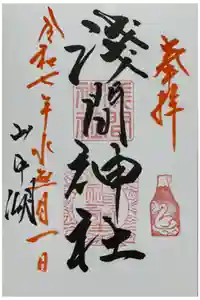 奉拝
淺間神社
山中湖
令和七年水無月一日